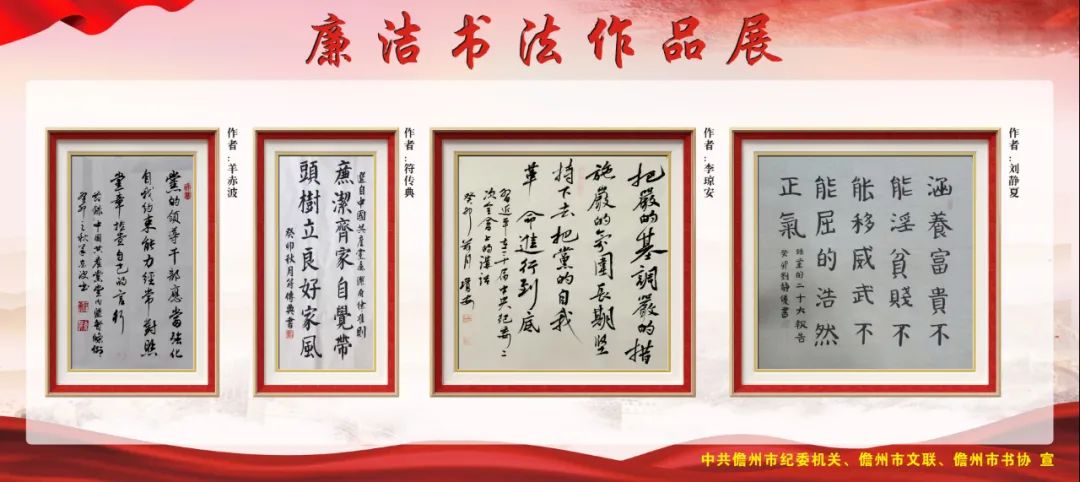 廉洁书法作品展
作者：羊赤波
黨的领导干部應當强化
自我约束能力经常對照
黨章检查自己的言行
节録中国共産黨党内監督條例
癸卯之秋羊赤波书
作者：符传典
選自中國共産黨廉潔自律准則
廉潔齊家自覺帶
頭樹立良好家風
癸卯秋月符傳典書
作者：李琼安
把嚴的基調嚴的措
施嚴的氛圍長期堅
持下去把黨的自我
革命進行到底
習近平在二十届中央纪委二
次全會上的講話
癸卯月琼安
作者：刘静夏
涵養富貴不
能淫貧賤不
能移威武不
能屈的浩然
正氣
録黨的二十大報告
癸卯劉静夏書
中共儋州市纪委机关、儋州市文联、儋州市书协 宣